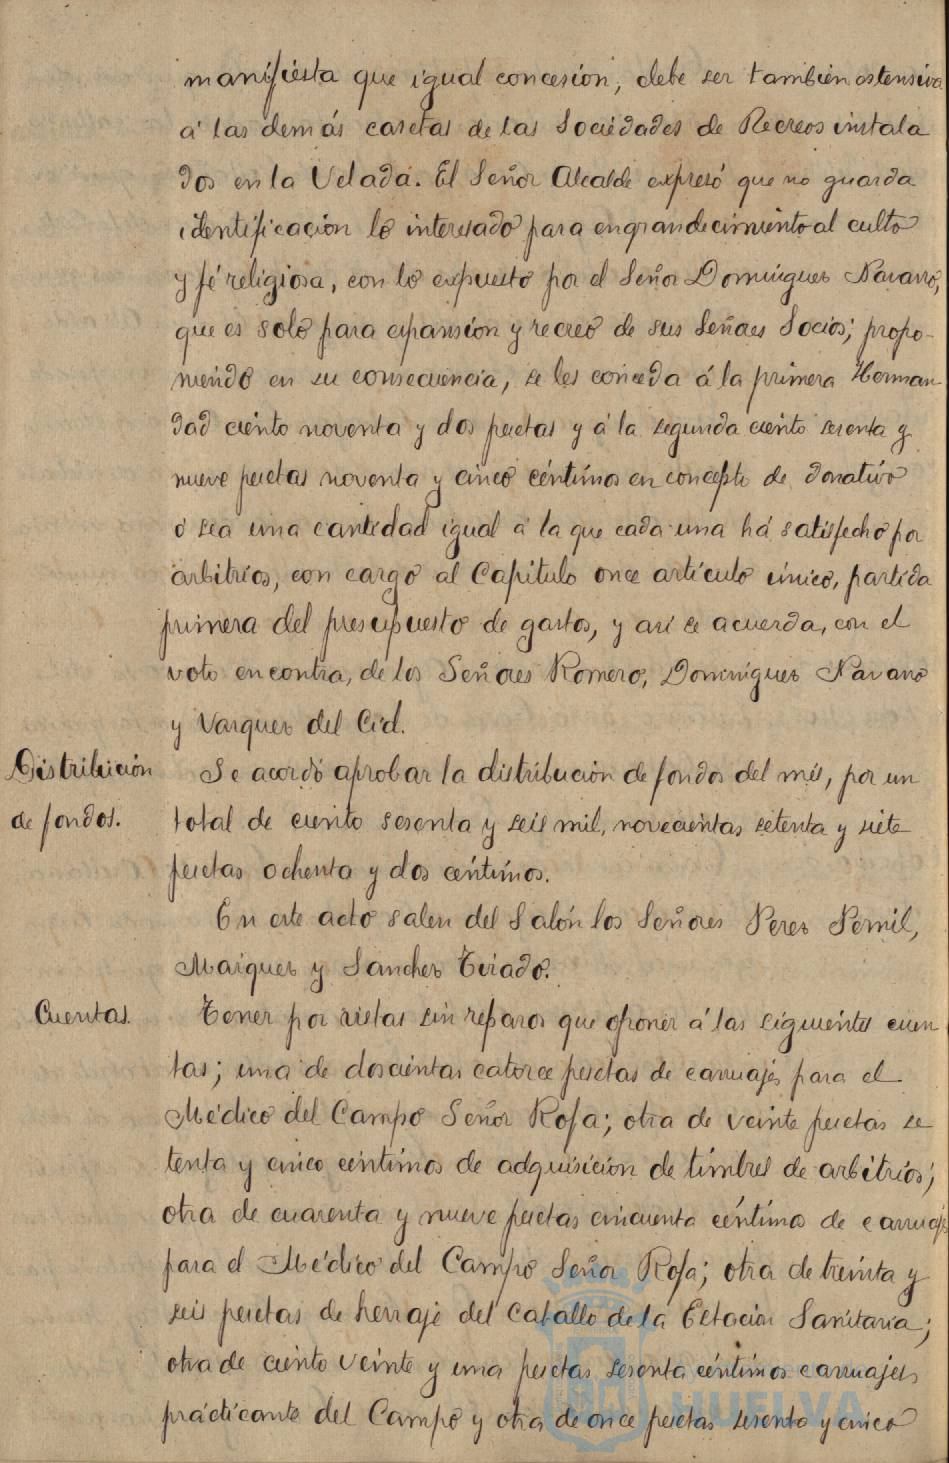 manifiesta que igual concesión, debe ser también ostensiva
á las demás casetas de las Sociedades de Recreos instala
dos en la Velada. El Señor Alcalde expresó que no guarda
identificación lo interesado para engrandecimiento al culto
y fé religiosa, con lo expuesto por el Señor Domínguez Navarro,
que es solo para expansión y recreo de sus Señores Socios; propo-
niendo en su consecuencia, se les conceda á la primera Herman
dad ciento noventa y dos pesetas y á la segunda ciento sesenta y
nueve pesetas noventa y cinco céntimos en concepto de donativo
ó sea una cantidad igual a la que cada una há satisfecho por
arbitrios, con cargo al Capitulo once artículo único, partida
primera del presupuesto de gastos, y así se acuerda, con el
voto en contra, de los Señores Romero, Domínguez Navarro
y Vazquez del Cid.
Distribución
de fondos.
Se acordó aprobar la distribución de fondos del mes, por un
total de ciento sesenta y seis mil, novecientas setenta y siete
pesetas ochenta y dos céntimos.
En este acto salen del Salón los Señores Perez Pernil,
Maiquez y Sanchez Tirado.
Cuentas.
Tener por vistas sin reparos que oponer á las siguientes cuen
tas; una de doscientas catorce pesetas de carruajes para el
Médico del Campo Señor Rofa; otra de veinte pesetas se
tenta y cinco céntimos de adquisición de timbres de arbitrios;
otra de cuarenta y nueve pesetas cincuenta céntimos de carruaje
para el Médico del Campo Señor Rofa; otra de treinta y
seis pesetas de herraje del Caballo de la Estación Sanitaria;
otra de ciento veinte y una pesetas sesenta céntimos carruajes
practicante del Campo y otra de once pesetas sesenta y cinco
HUELVA